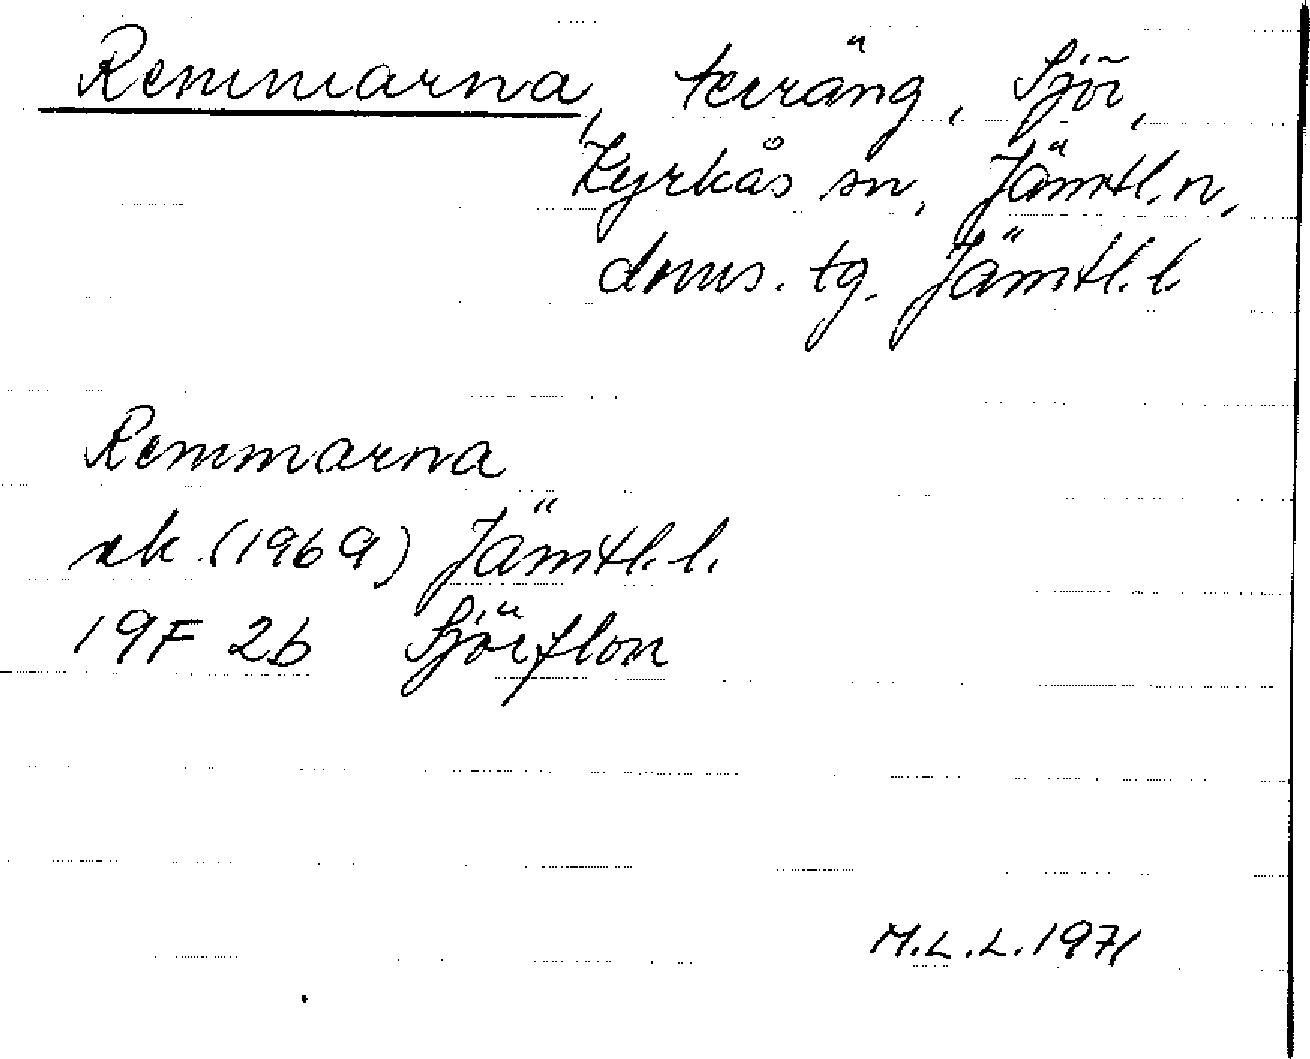 Remmarna, terräng, Sjör,
Kyrkås sn, Jämtl. n.
doms. tg. Jämtl. l.
Remmarna
ek. (1969) Jämtl. l.
19F 2b Sjörflon
M.L.L. 1971